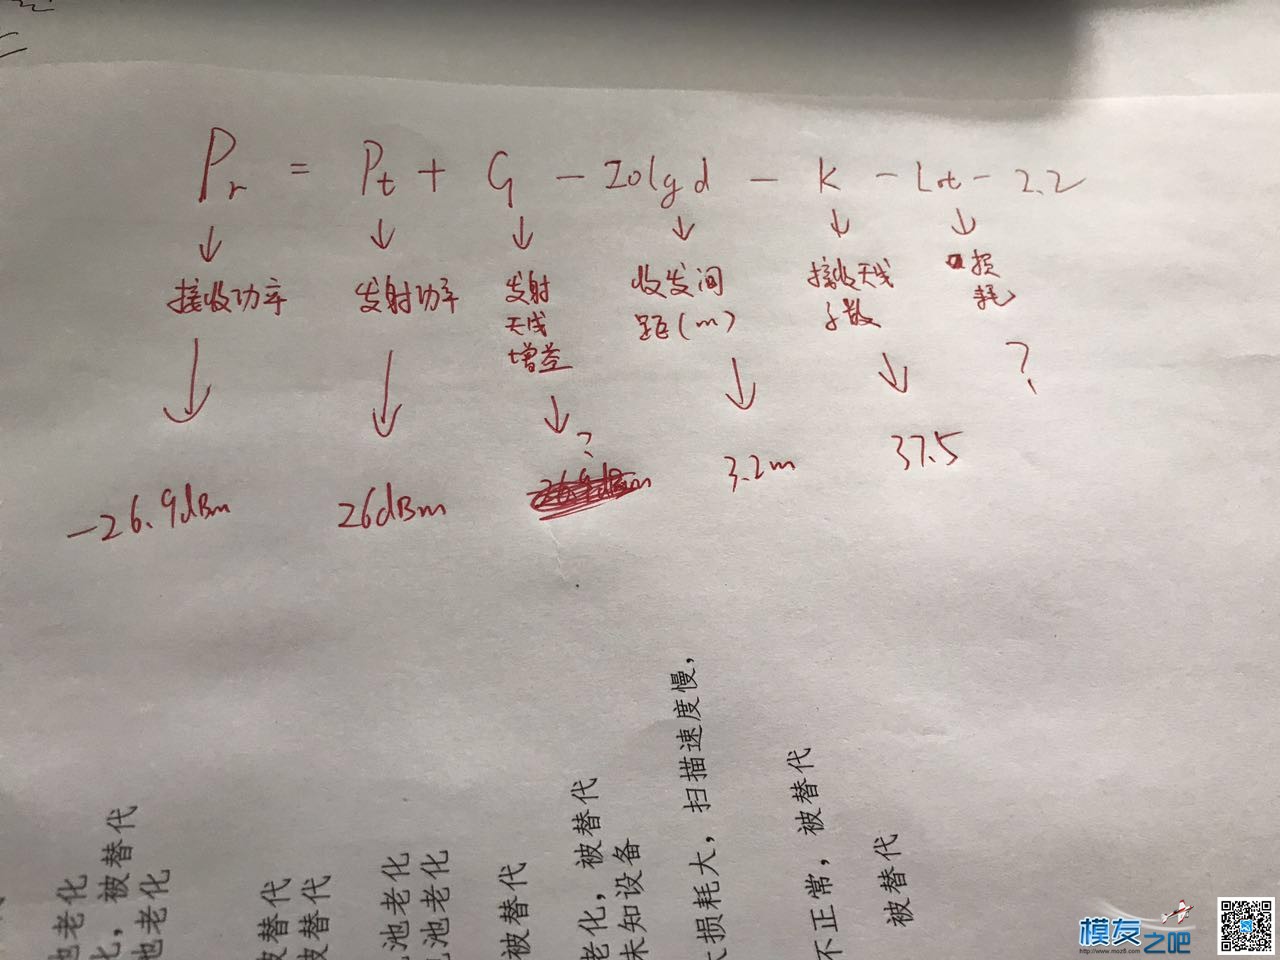 Pr = Pt + G - 20lgd - K - Lot - 2.2
接收功率
发射功率
发射
天线
增益
收发间
距(m)
接收天线
子数
损
耗
?
?
-26.9dBm
26dBm
3.2m
37.5
池老化
化，被替代
池老化
被替代
被替代
池老化
池老化
被替代
老化，被替代
未知设备
损耗大，扫描速度慢，
不正常，被替代
被替代
模友之吧
http://www.moz8.com